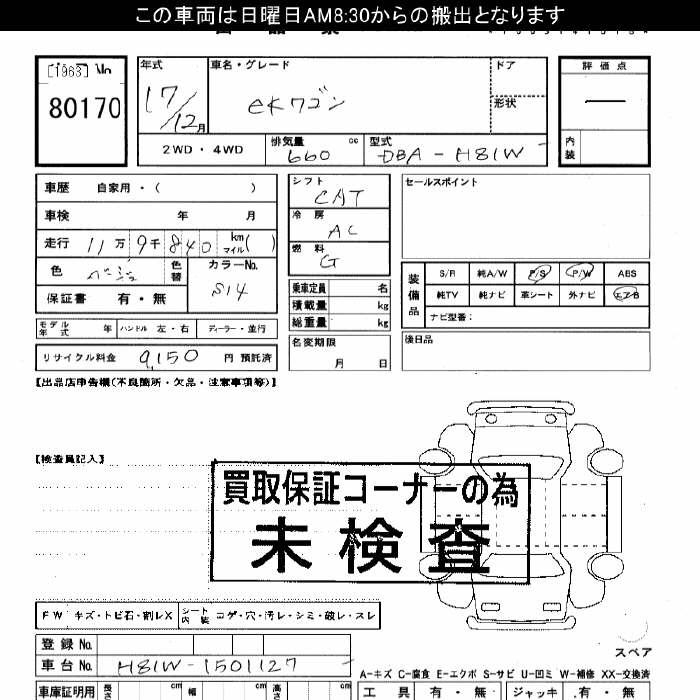 この車両は日曜日AM8:30からの搬出となります
[1963] No
80170
年式
17/12月
車名・グレード
eKワゴン
ドア
形状
評価点
内装
2WD・4WD
排気量 660 cc
型式 DBA-H81W
車歴 自家用・( )
車検 年 月
走行 11万 9千 840 km マイル( )
色 ベージュ
色替
カラーNo. S14
保証書 有・無
シフト CAT
冷房 AC
燃料 G
セールスポイント
装備品
S/R 純A/W P/S P/W ABS
純TV 純ナビ 革シート 外ナビ エアB
ナビ型番:
乗車定員 名
積載量 kg
総重量 kg
モデル年式 年 ハンドル 左・右 ディーラー・並行
名変期限 月 日
後日品
リサイクル料金 9,150 円 預託済
【出品店申告欄(不良箇所・欠品・注意事項等)】
【検査員記入】
買取保証コーナーの為
未検査
FW キズ・トビ石・割レX
シート内装 コゲ・穴・汚レ・シミ・破レ・スレ
登録No.
車台No. H81W-1501127
スペア
A-キズ C-腐食 E-エクボ S-サビ U-凹ミ W-補修 XX-交換済
車庫証明用 長さ cm 幅 cm 高さ cm
工具 有・無 ジャッキ 有・無